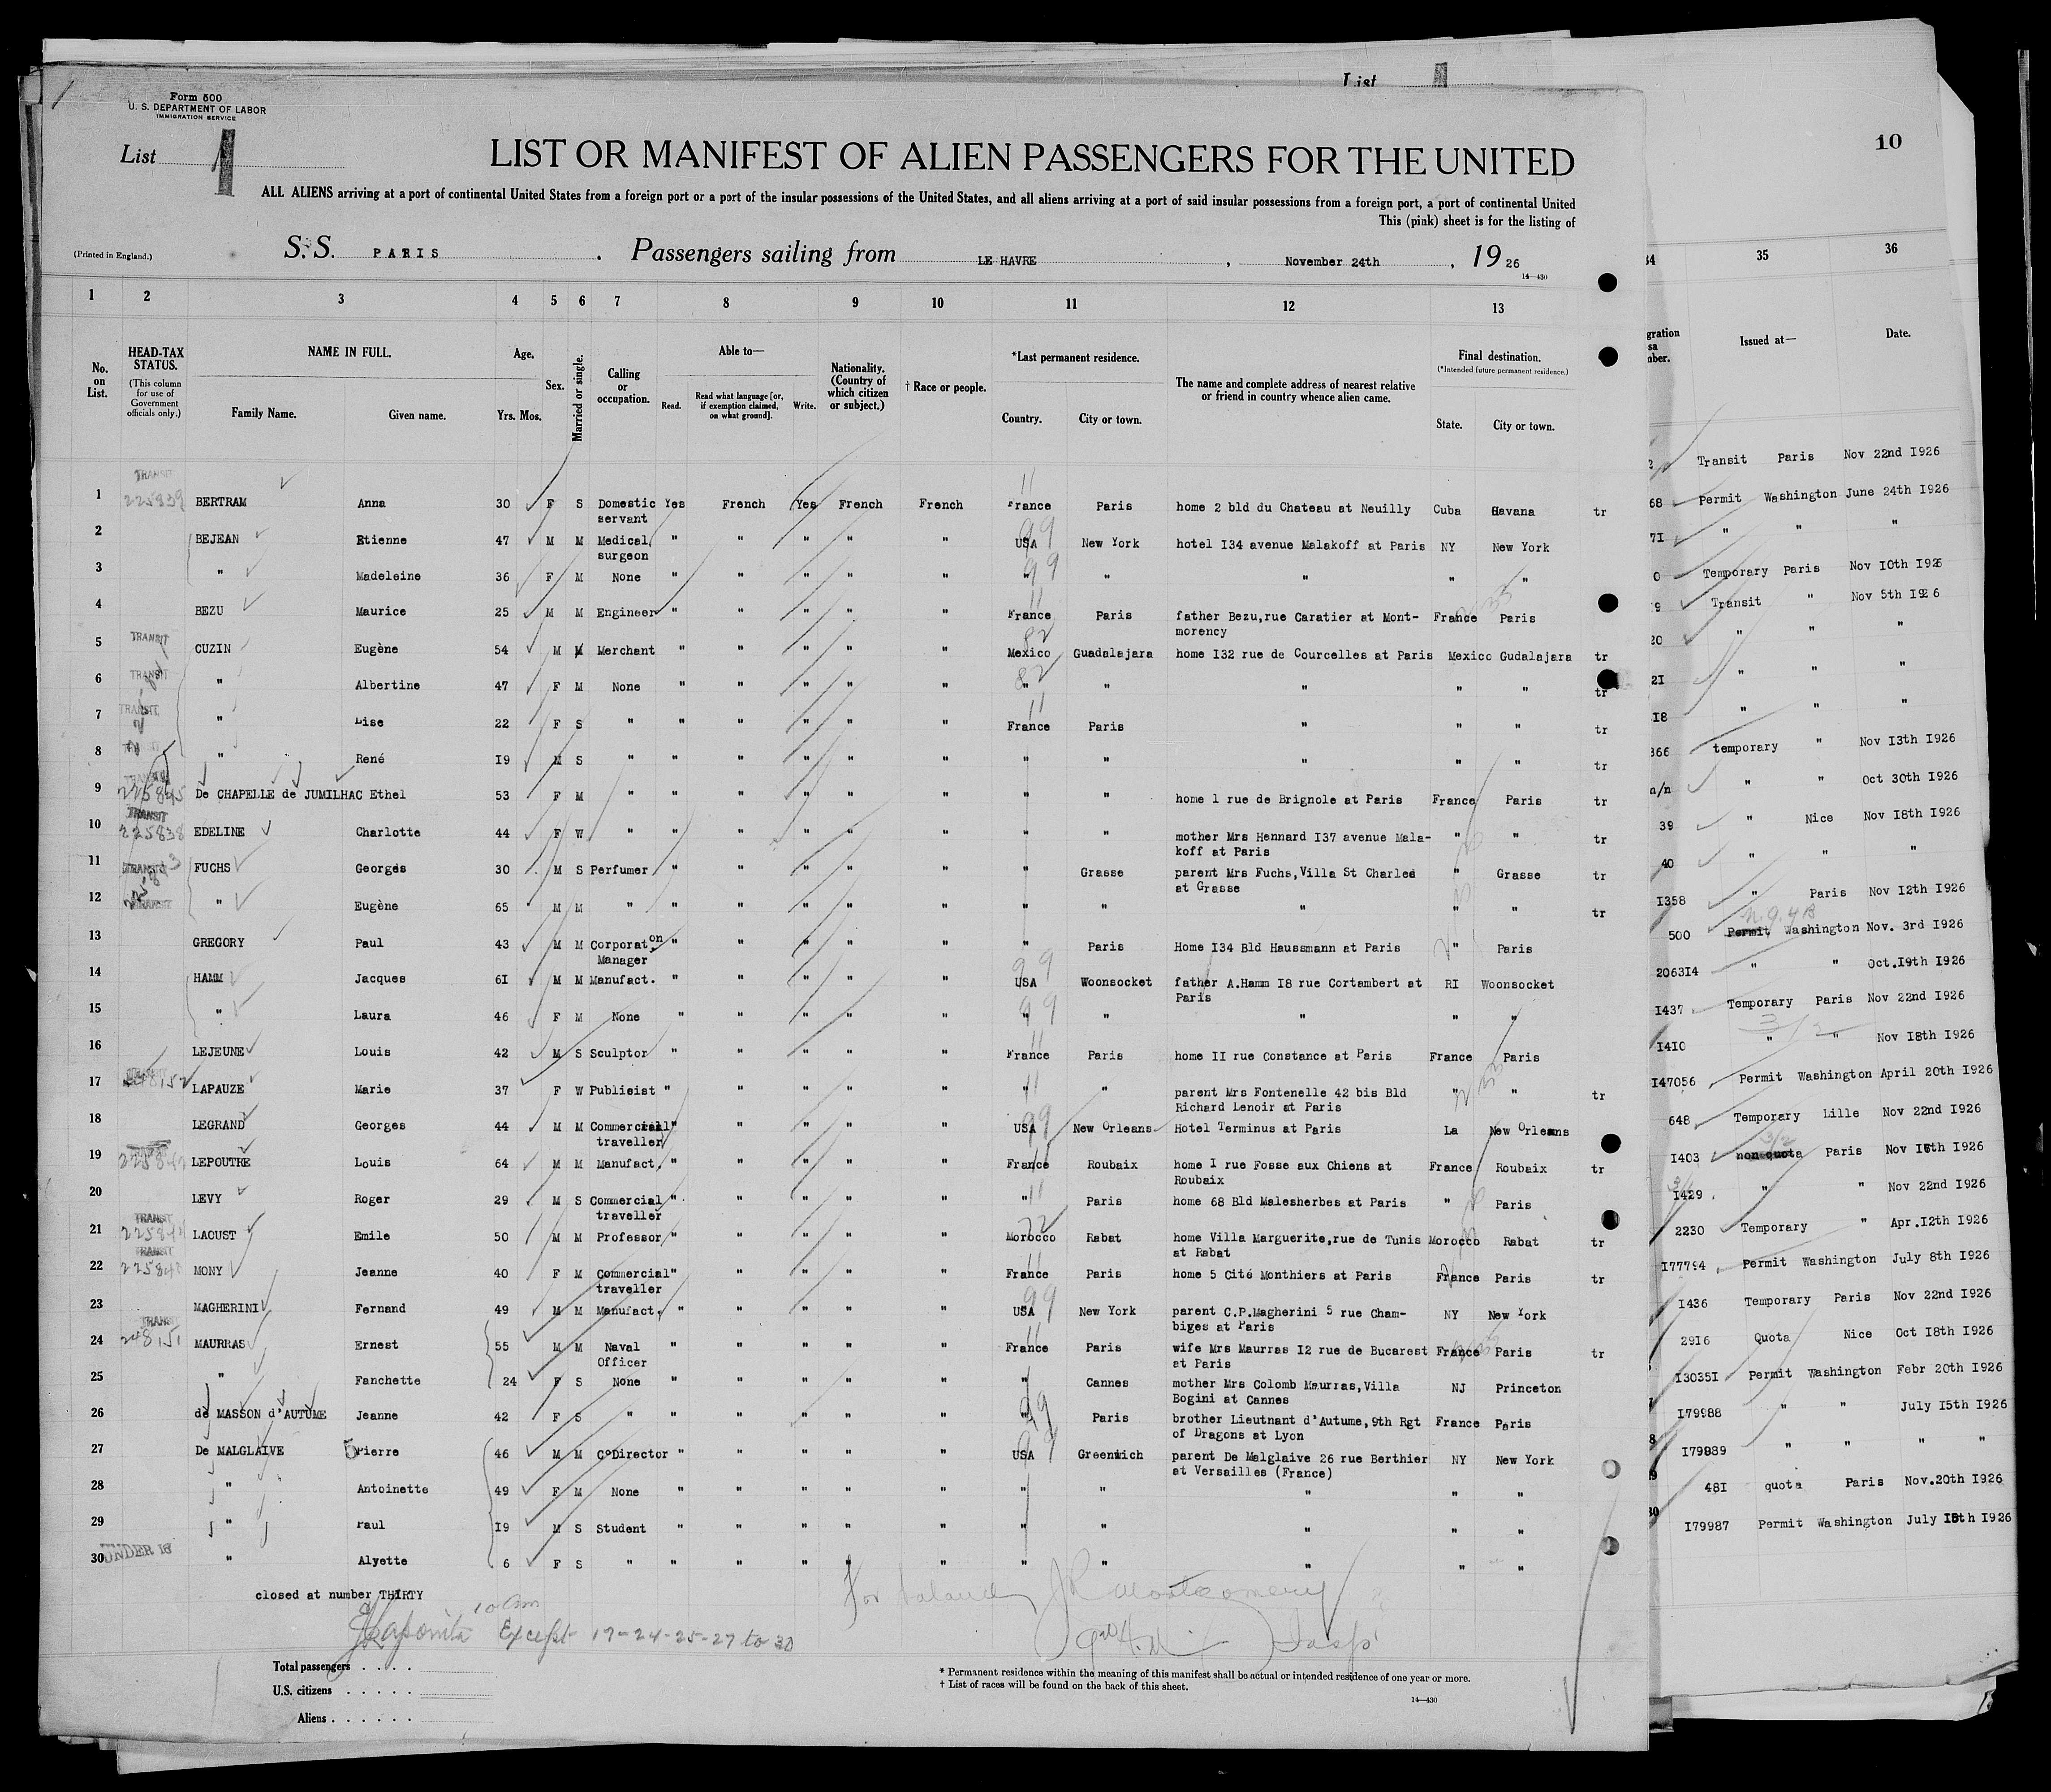 List
Form 500
U. S. DEPARTMENT OF LABOR
IMMIGRATION SERVICE
List 1
LIST OR MANIFEST OF ALIEN PASSENGERS FOR THE UNITED
ALL ALIENS arriving at a port of continental United States from a foreign port or a port of the insular possessions of the United States, and all aliens arriving at a port of said insular possessions from a foreign port, a port of continental United
This (pink) sheet is for the listing of
(Printed in England.) S.S. PARIS . Passengers sailing from LE HAVRE , November 24th , 1926
14—430
1 2 3 4 5 6 7 8 9 10 11 12 13
No. on List. HEAD-TAX STATUS. (This column for use of Government officials only.) NAME IN FULL. Family Name. Given name. Age. Yrs. Mos. Sex. Married or single. Calling or occupation. Able to— Read. Read what language [or, if exemption claimed, on what ground]. Write. Nationality. (Country of which citizen or subject.) † Race or people. *Last permanent residence. Country. City or town. The name and complete address of nearest relative or friend in country whence alien came. Final destination. (*Intended future permanent residence.) State. City or town.
TRANSIT
1 225839 BERTRAM Anna 30 F S Domestic Yes French Yes French French France Paris home 2 bld du Chateau at Neuilly Cuba Havana tr
servant
2 BEJEAN Etienne 47 M M Medical " " " " " USA New York hotel I34 avenue Malakoff at Paris NY New York
surgeon
3 " Madeleine 36 F M None " " " " " " " " " "
4 BEZU Maurice 25 M M Engineer " " " " " France Paris father Bezu,rue Caratier at Mont- France Paris
morency
5 TRANSIT CUZIN Eugène 54 M M Merchant " " " " " Mexico Guadalajara home I32 rue de Courcelles at Paris Mexico Gudalajara tr
6 TRANSIT " Albertine 47 F M None " " " " " " " " " " tr
7 TRANSIT " Lise 22 F S " " " " " " France Paris " " " tr
8 " René I9 M S " " " " " " " " " " " tr
9 225845 De CHAPELLE de JUMILHAC Ethel 53 F M " " " " " " " " home 1 rue de Brignole at Paris France Paris tr
TRANSIT
10 225838 EDELINE Charlotte 44 F W " " " " " " " " mother Mrs Hennard I37 avenue Mala- " " tr
koff at Paris
11 TRANSIT FUCHS Georges 30 M S Perfumer " " " " " " Grasse parent Mrs Fuchs,Villa St Charles " Grasse tr
at Grasse
12 TRANSIT " Eugène 65 M M " " " " " " " " " " " tr
13 GREGORY Paul 43 M M Corporation " " " " " " Paris Home I34 Bld Haussmann at Paris " Paris
Manager
14 HAMM Jacques 6I M M Manufact. " " " " " USA Woonsocket father A.Hamm I8 rue Cortambert at RI Woonsocket
Paris
15 " Laura 46 F M None " " " " " " " " " "
16 LEJEUNE Louis 42 M S Sculptor " " " " " France Paris home II rue Constance at Paris France Paris
17 LAPAUZE Marie 37 F W Publicist " " " " " " " parent Mrs Fontenelle 42 bis Bld " " tr
Richard Lenoir at Paris
18 LEGRAND Georges 44 M M Commercial " " " " " USA New Orleans Hotel Terminus at Paris La New Orleans
traveller
19 LEPOUTRE Louis 64 M M Manufact. " " " " " France Roubaix home I rue Fosse aux Chiens at France Roubaix tr
Roubaix
20 LEVY Roger 29 M S Commercial " " " " " " Paris home 68 Bld Malesherbes at Paris " Paris
traveller
TRANSIT
21 LAOUST Emile 50 M M Professor " " " " " Morocco Rabat home Villa Marguerite,rue de Tunis Morocco Rabat tr
at Rabat
TRANSIT
22 MONY Jeanne 40 F M Commercial " " " " " France Paris home 5 Cité Monthiers at Paris France Paris tr
traveller
23 MAGHERINI Fernand 49 M M Manufact. " " " " " USA New York parent C.P.Magherini 5 rue Cham- NY New York
biges at Paris
TRANSIT
24 248151 MAURRAS Ernest 55 M M Naval " " " " " France Paris wife Mrs Maurras I2 rue de Bucarest France Paris tr
Officer at Paris
25 " Fanchette 24 F S None " " " " " " Cannes mother Mrs Colomb Maurras,Villa NJ Princeton
Bogini at Cannes
26 de MASSON d'AUTUME Jeanne 42 F S " " " " " " " Paris brother Lieutnant d'Autume,9th Rgt France Paris
of Dragons at Lyon
27 De MALGLAIVE Pierre 46 M M C°Director " " " " " USA Greenwich parent De Malglaive 26 rue Berthier NY New York
at Versailles (France)
28 " Antoinette 49 F M None " " " " " " " " " "
29 " Paul I9 M S Student " " " " " " " " " "
30 UNDER 16 " Alyette 6 F S " " " " " " " " " " "
closed at number THIRTY
10 am
Except 17-24-25-27 to 30
J R Montgomery
Total passengers . . . .
U.S. citizens . . . . .
Aliens . . . . . .
* Permanent residence within the meaning of this manifest shall be actual or intended residence of one year or more.
† List of races will be found on the back of this sheet.
14—430
10
34 35 36
Issued at— Date.
2 Transit Paris Nov 22nd I926
68 Permit Washington June 24th I926
7I " " "
0 Temporary Paris Nov I0th I926
9 Transit " Nov 5th I926
20 " " "
2I " " "
I8 " " "
366 temporary " Nov I3th I926
n/n " " Oct 30th I926
39 " Nice Nov I8th I926
40 " " "
I358 " Paris Nov I2th I926
500 Permit Washington Nov. 3rd I926
2063I4 " " Oct.I9th I926
I437 Temporary Paris Nov 22nd I926
I4I0 " " Nov I8th I926
I47056 Permit Washington April 20th I926
648 Temporary Lille Nov 22nd I926
3/2
I403 non-quota Paris Nov I5th I926
I429 " " Nov 22nd I926
2230 Temporary " Apr.I2th I926
I77794 Permit Washington July 8th I926
I436 Temporary Paris Nov 22nd I926
29I6 Quota Nice Oct I8th I926
I3035I Permit Washington Febr 20th I926
I79988 " " July I5th I926
I79989 " " " "
48I quota Paris Nov.20th I926
I79987 Permit Washington July I5th I926